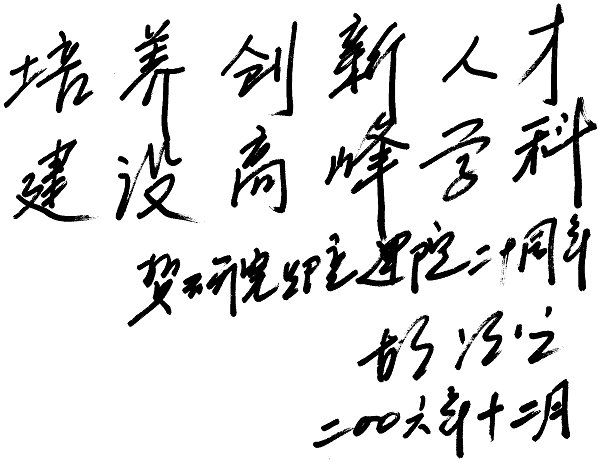 培养创新人才
建设高峰学科
贺研究建院二十周年
胡
二00六年十二月